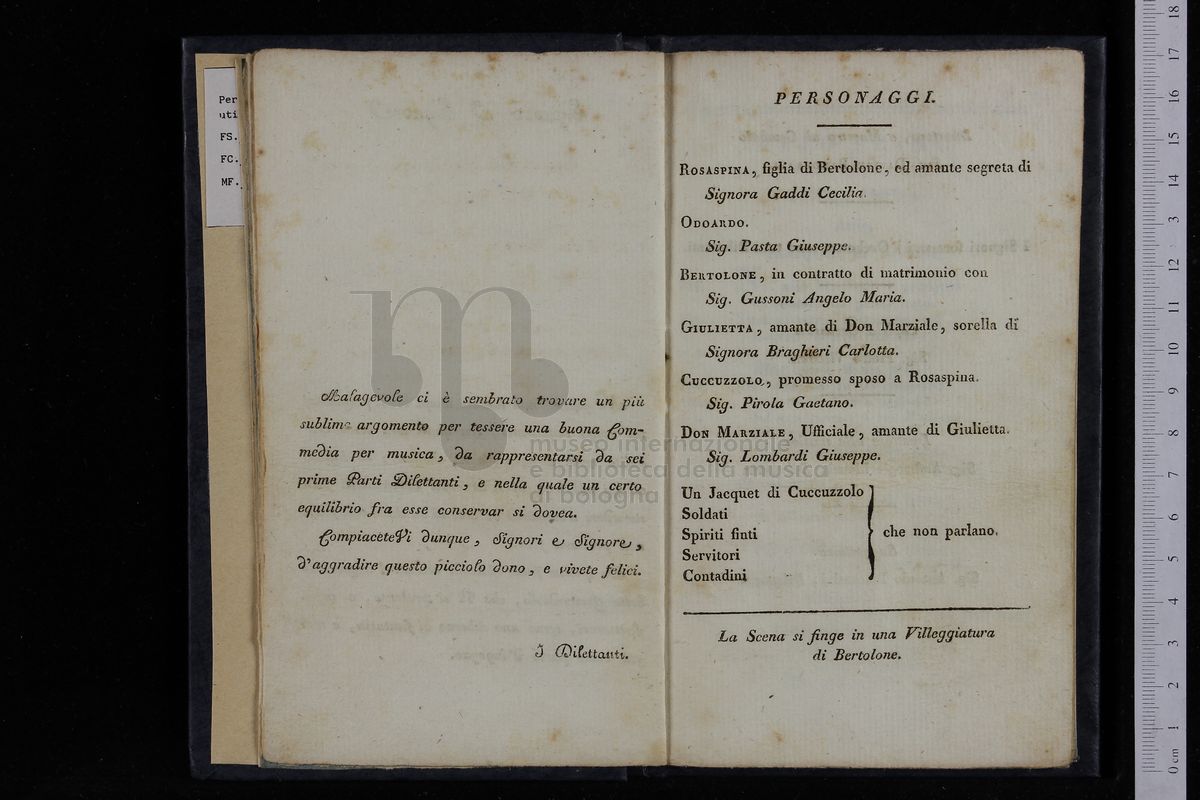 Per
uti
FS.
FC.
MF.
Malagevole ci è sembrato trovare un più
sublime argomento per tessere una buona Com-
media per musica, da rappresentarsi da sei
prime Parti Dilettanti, e nella quale un certo
equilibrio fra esse conservar si dovea.
CompiaceteVi dunque, Signori e Signore,
d'aggradire questo picciolo dono, e vivete felici.
I Dilettanti.
PERSONAGGI.
ROSASPINA, figlia di Bertolone, ed amante segreta di
Signora Gaddi Cecilia.
ODOARDO.
Sig. Pasta Giuseppe.
BERTOLONE, in contratto di matrimonio con
Sig. Gussoni Angelo Maria.
GIULIETTA, amante di Don Marziale, sorella di
Signora Braghieri Carlotta.
CUCCUZZOLO, promesso sposo a Rosaspina.
Sig. Pirola Gaetano.
DON MARZIALE, Ufficiale, amante di Giulietta.
Sig. Lombardi Giuseppe.
Un Jacquet di Cuccuzzolo
Soldati
Spiriti finti
Servitori
Contadini
che non parlano.
La Scena si finge in una Villeggiatura
di Bertolone.
museo internazionale
e biblioteca della musica
di bologna
0 cm 1 2 3 4 5 6 7 8 9 10 11 12 13 14 15 16 17 18